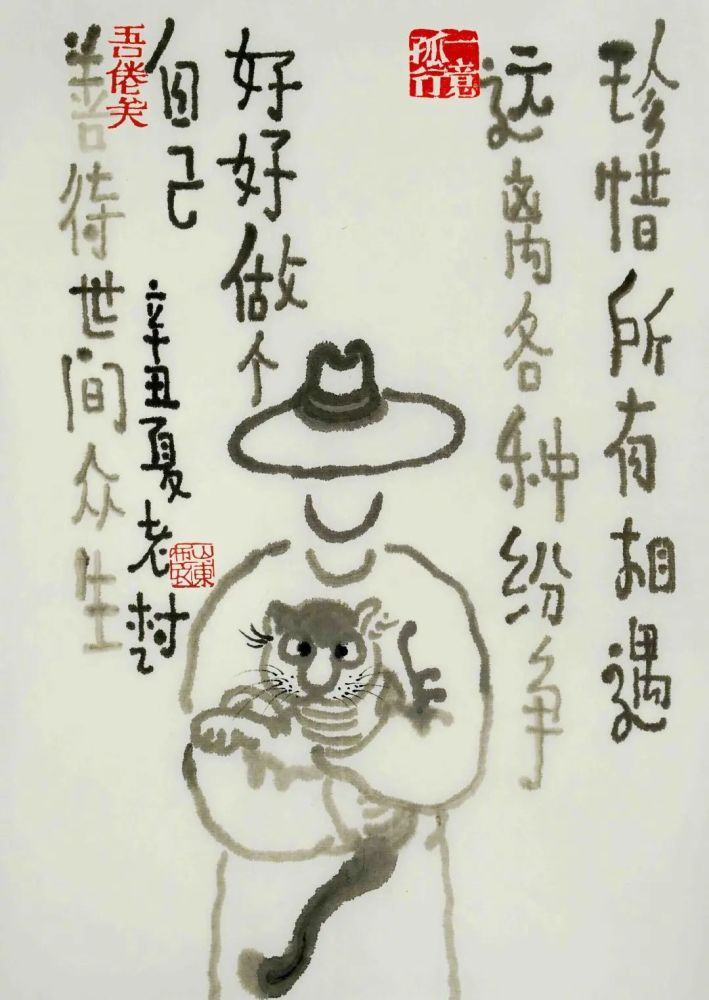 珍惜所有相遇
远离各种纷争
一意孤行
好好做个
自己
辛丑夏老树
善待世间众生